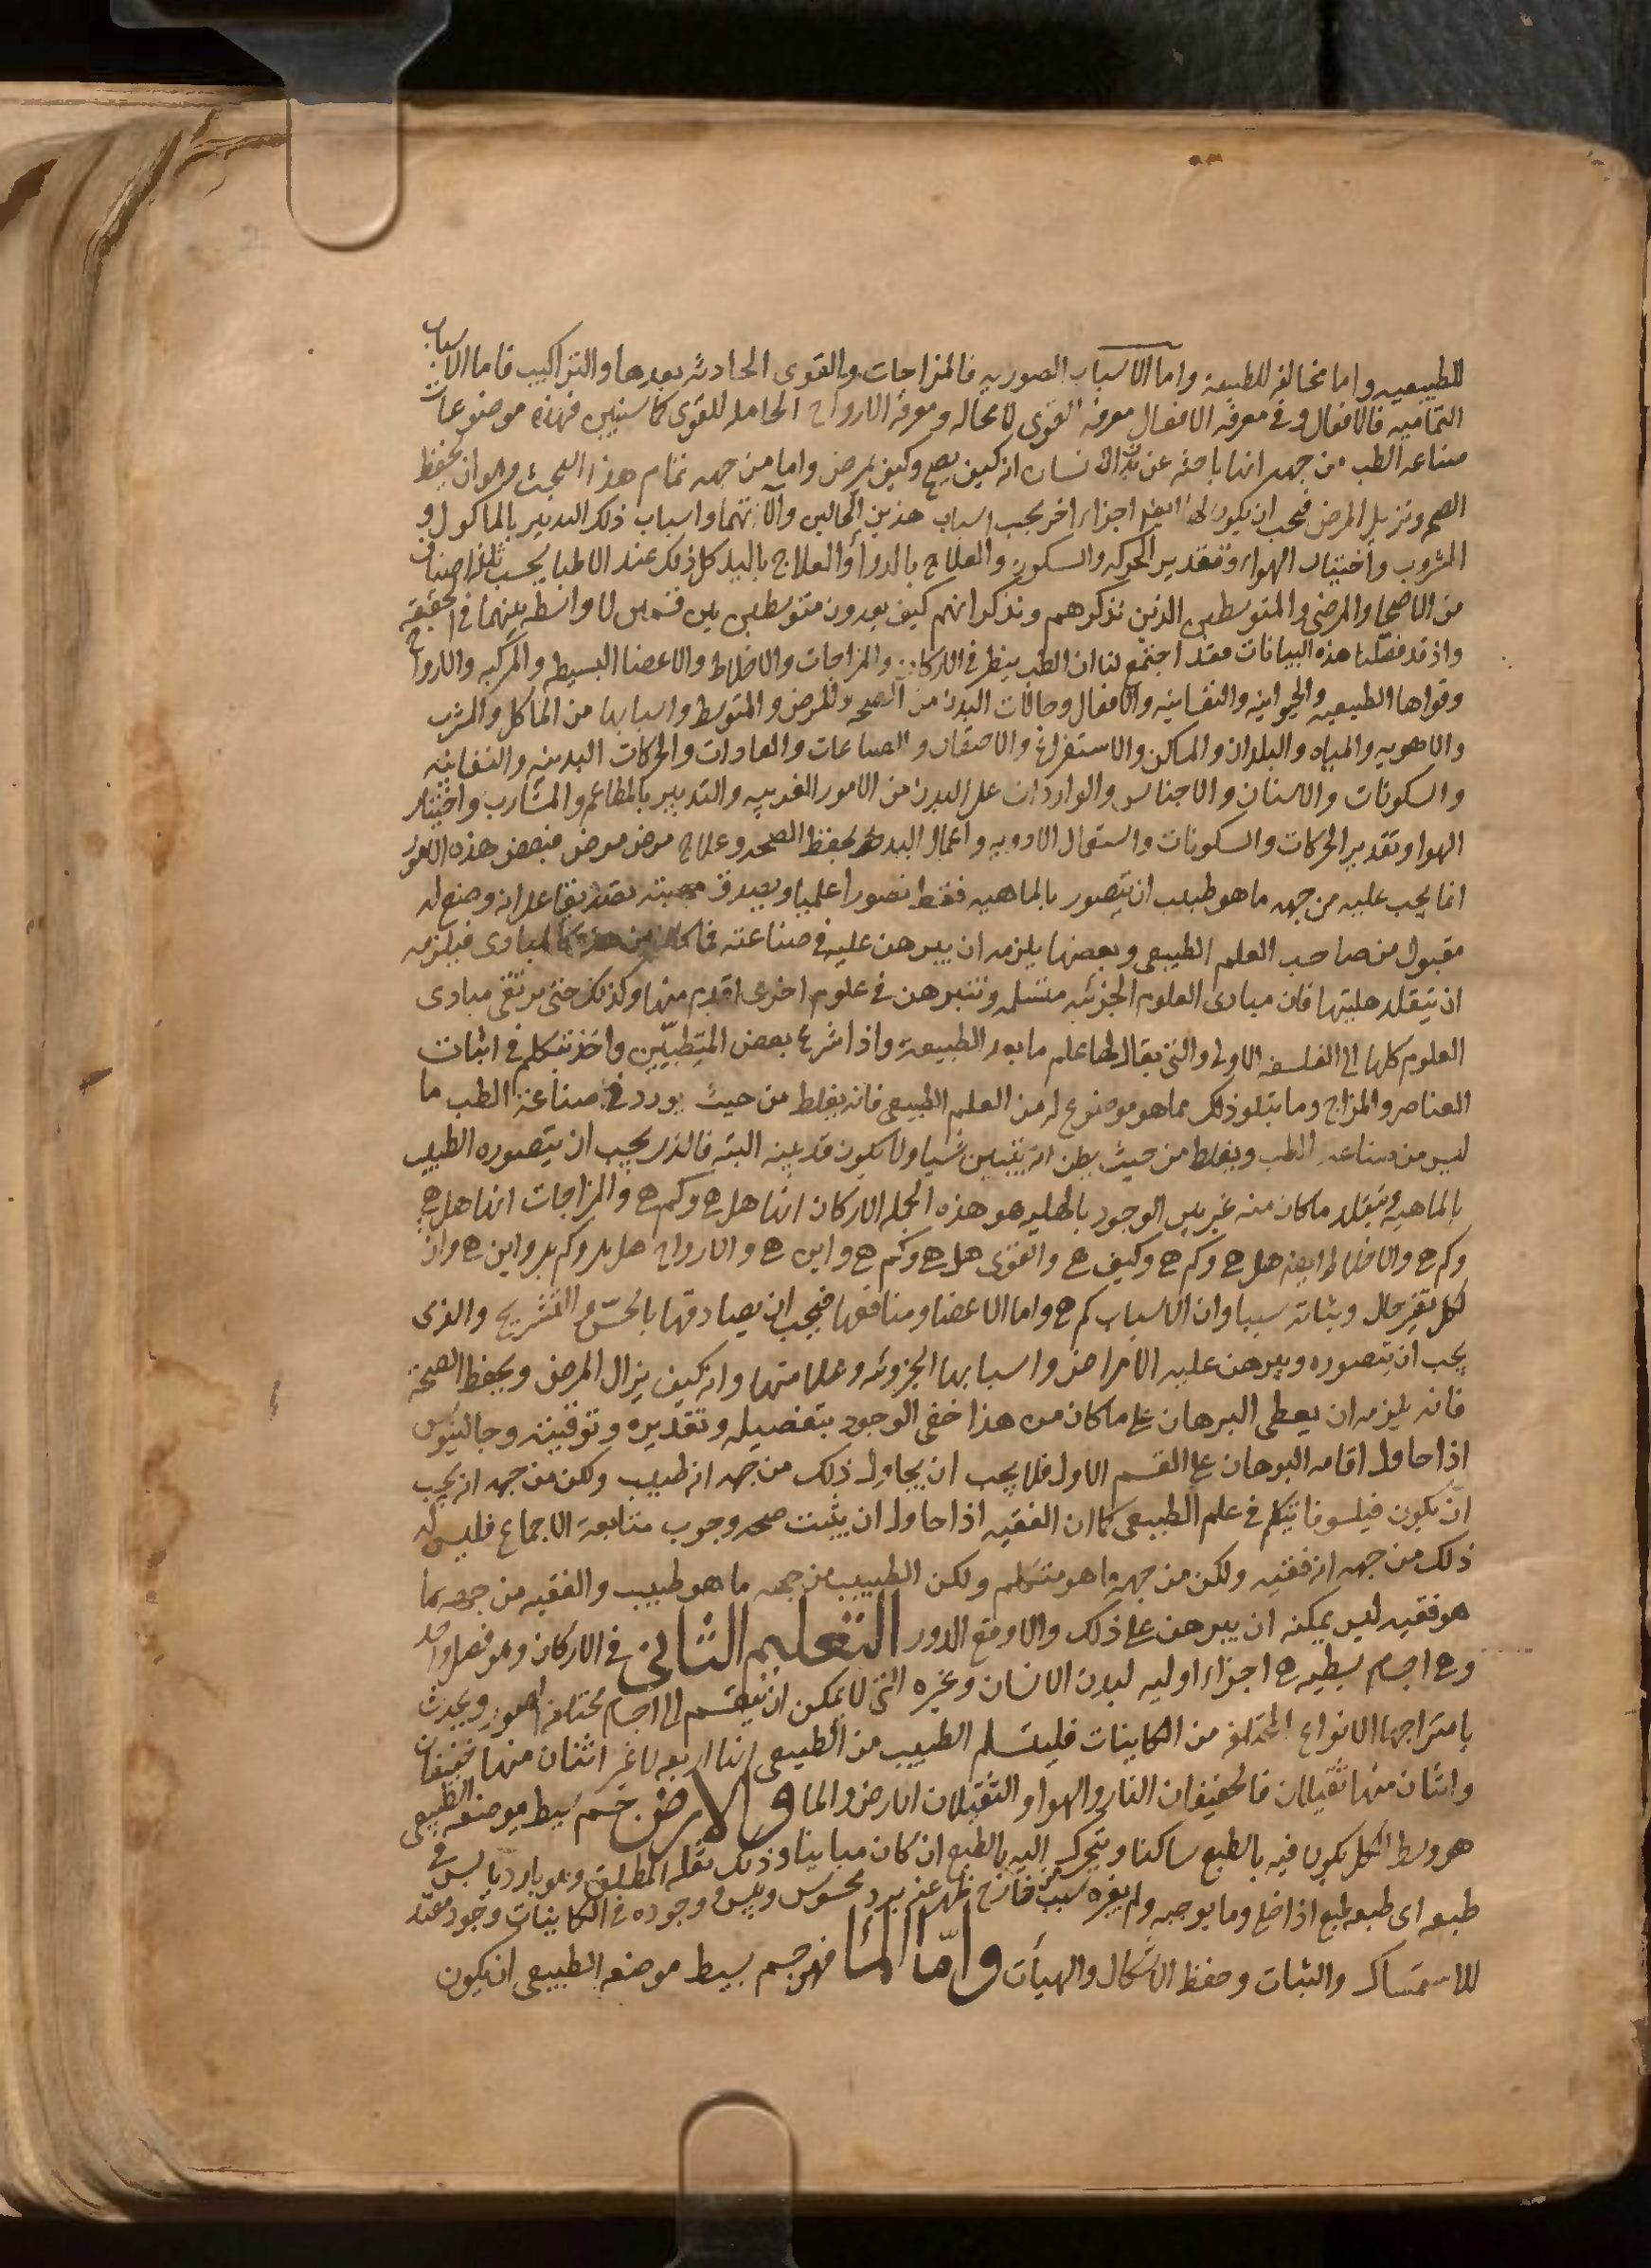 للطبيعيه واما مخالفه للطبيعة واما الاسباب الصوريه فالمزاجات والقوى الحادثه بعدها والتراكيب فاما الاسباب
التماميه فالافعال وفى معرفه الافعال معرفه القوى لا محاله ومعرفه الارواح الحامله للقوى كما سنبين فهذه موضوعات
صناعه الطب من جهه انها باحثه عن بدن الانسان انه كيف يصح وكيف يمرض واما من جهه تمام هذا البحث وهو ان يحفظ
الصحه وتزيل المرض فيجب ان يكون لها ايضا اجزاء اخر بحسب اسباب هذين الحالين والاتهما واسباب ذلك التدبير بالماكول و
المشروب واختيار الهواء وتقدير الحركه والسكون والعلاج بالدوا والعلاج باليد كل ذلك عند الاطبا بحسب ثلثه اصناف
من الاصحا والمرضى والمتوسطين الذين نذكرهم ونذكر انهم كيف يعدون متوسطين بين قسمين لا واسطه بينهما فى الحقيقه
واذ قد فصلنا هذه البيانات فقد اجتمع لنا ان الطب ينظر فى الاركان والمزاجات والاخلاط والاعضا البسيطه والمركبه والارواح
وقواها الطبيعيه والحيوانيه والنفسانيه والافعال وحالات البدن من الصحه والمرض والمتوسط واسبابها من الماكل والمشرب
والاهويه والمياه والبلدان والمساكن والاستفراغ والاحتقان والصناعات والعادات والحركات البدنيه والنفسانيه
والسكونات والاسنان والاجناس والواردات على البدن من الامور الغريبه والتدبير بالمطاعم والمشارب واختيار
الهوا وتقدير الحركات والسكونات واستعمال الادويه واعمال اليد لحفظ الصحه وعلاج مرض مرض فبعض هذه الامور
انما يجب عليه من جهه ما هو طبيب ان يتصور بالماهيه فقط تصورا علميا ويصدق بهليته تصديقا على انه وضع له
مقبول من صاحب العلم الطبيعى وبعضها يلزمه ان يبرهن عليه فى صناعته فما كان من هذه كالمبادى فيلزمه
ان يتقلد هليتها فان مبادى العلوم الجزئيه متسلمه وتتبرهن فى علوم اخرى اقدم منها وكذلك حتى ترتقى مبادى
العلوم كلها الى الفلسفه الاولى والتى يقال لها علم ما بعد الطبيعة واذا شرع بعض المتطببين واخذ تتكلم فى اثبات
العناصر والمزاج وما يتلو ذلك مما هو موضوع له من العلم الطبيعى فانه يغلط من حيث يورد فى صناعة الطب ما
ليس من صناعه الطب ويغلط من حيث يظن انه يتبين شيا ولا يكون قد بينه البته فالذى يجب ان يتصوره الطبيب
بالماهيه ويتقلد ما كان منه غير بين الوجود بالهليه هو هذه الجمله الاركان انها هل هى وكم هى والمزاجات انها هل هى
وكم هى والاخلاط ايضا هل هى وكم هى وكيف هى والقوى هل هى وكم هى واين هى والارواح هل هى وكم هى واين هى وان
لكل تغير حال وثباته سببا وان الاسباب كم هى واما الاعضا ومنافعها فيجب ان يصادقها بالحس والتشريح والذى
يجب ان يتصوره ويبرهن عليه الامراض واسبابها الجزويه وعلامتها وانه كيف يزال المرض ويحفظ الصحة
فانه يلزمه ان يعطى البرهان على ما كان من هذا خفى الوجود بتفصيله وتقديره وتوقيته وجالينوس
اذا حاول اقامه البرهان على القسم الاول فلا يجب ان يحاول ذلك من جهه انه طبيب ولكن من جهه انه يجب
ان يكون فيلسوفا يتكلم فى علم الطبيعى كما ان الفقيه اذا حاول ان يثبت صحه وجوب متابعة الاجماع فليس له
ذلك من جهه انه فقيه ولكن من جهة ما هو متكلم ولكن الطبيب من جهه ما هو طبيب والفقيه من جهه ما
هو فقيه ليس يمكنه ان يبرهن على ذلك والا وقع الدور التعليم الثانى فى الاركان وهو فصل واحد
وهى اجسام بسيطه هى اجزاء اوليه لبدن الانسان وغيره التى لا يمكن ان ينقسم الى اجسام مختلفه الصور ويحدث
بامتزاجها الانواع المختلفه من الكاينات فليتسلم الطبيب من الطبيعى انها اربعه لا غير اثنان منها خفيفان
واثنان منها ثقيلان فالخفيفان النار والهوا والثقيلان الارض والما والارض جسم بسيط موضعه الطبيعى
هو وسط الكل يكون فيه بالطبع ساكنا ويتحرك اليه بالطبع ان كان مباينا وذلك ثقله المطلق وهو بارد يابس فى
طبعه اى طبعه طبع اذا خلى وما يوجبه ولم يغيره سبب خارج ظهر عنه برد محسوس ويبس ووجوده فى الكاينات وجود مفيد
للاستمساك والثبات وحفظ الاشكال والهيأت واما الما فهو جسم بسيط موضعه الطبيعى ان يكون